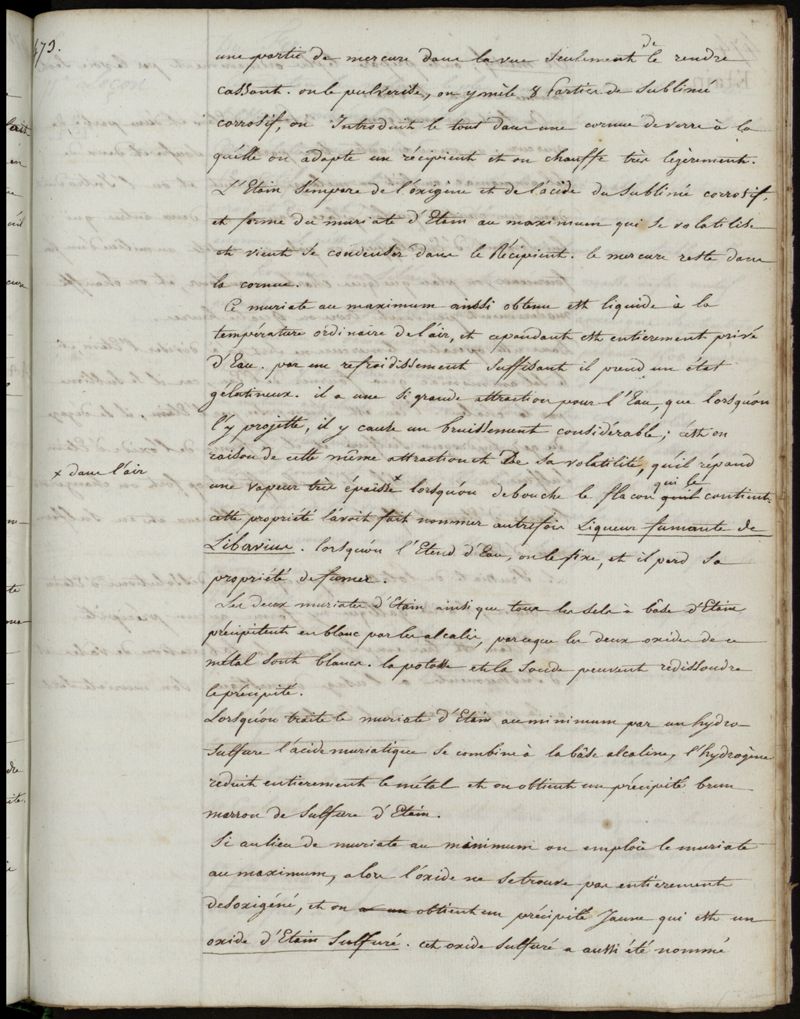 473.
une partie de mercure dans la vue seulement de le rendre
cassant. on le pulverise, on y mêle 8 Parties de Sublimé
corrosif, on Introduit le tout dans une cornue de verre à la
quelle on adapte un récipient et on chauffe très légèrement.
L'Etain s'empare de l'oxigène et de l'acide du Sublimé corrosif,
et forme du muriate d'Etain au maximum qui se volatilise
et vient se condenser dans le Récipient. le mercure reste dans
la cornue.
Ce muriate au maximum ainsi obtenu est liquide à la
température ordinaire de l'air, et cependant est entierement privé
d'Eau. par un refroidissement suffisant il prend un état
gélatineux. il a une si grande attraction pour l'Eau, que lorsqu'on
l'y projette, il y cause un bruissement considérable; c'est en
raison de cette même attraction et De sa volatilité, qu'il répand
x dans l'air
une vapeur très épaisse x lorsqu'on debouche le flacon qui le contient.
cette propriété l'avoit fait nommer autrefois Liqueur fumante de
Libavius. lorsqu'on l'Etend d'Eau, on le fixe, et il perd sa
propriété de fumer.
Les deux muriates d'Etain ainsi que tous les sels à bâse d'Etain
précipitent en blanc par les alcalis, parceque les deux oxides de ce
métal sont blancs. la potasse et la Soude peuvent redissoudre
le précipité.
Lorsqu'on traite le muriate d'Etain au minimum par un hydro-
sulfure l'acide muriatique se combine à la bâse alcaline, l'hydrogène
reduit entierement le métal et on obtient un précipité brun
marron de Sulfure d'Etain.
Si au lieu de muriate au minimum on emploie le muriate
au maximum, alors l'oxide ne se trouve pas entierement
desoxigéné, et on obtient un précipité Jaune qui est un
oxide d'Etain Sulfuré. cet oxide sulfuré a aussi été nommé